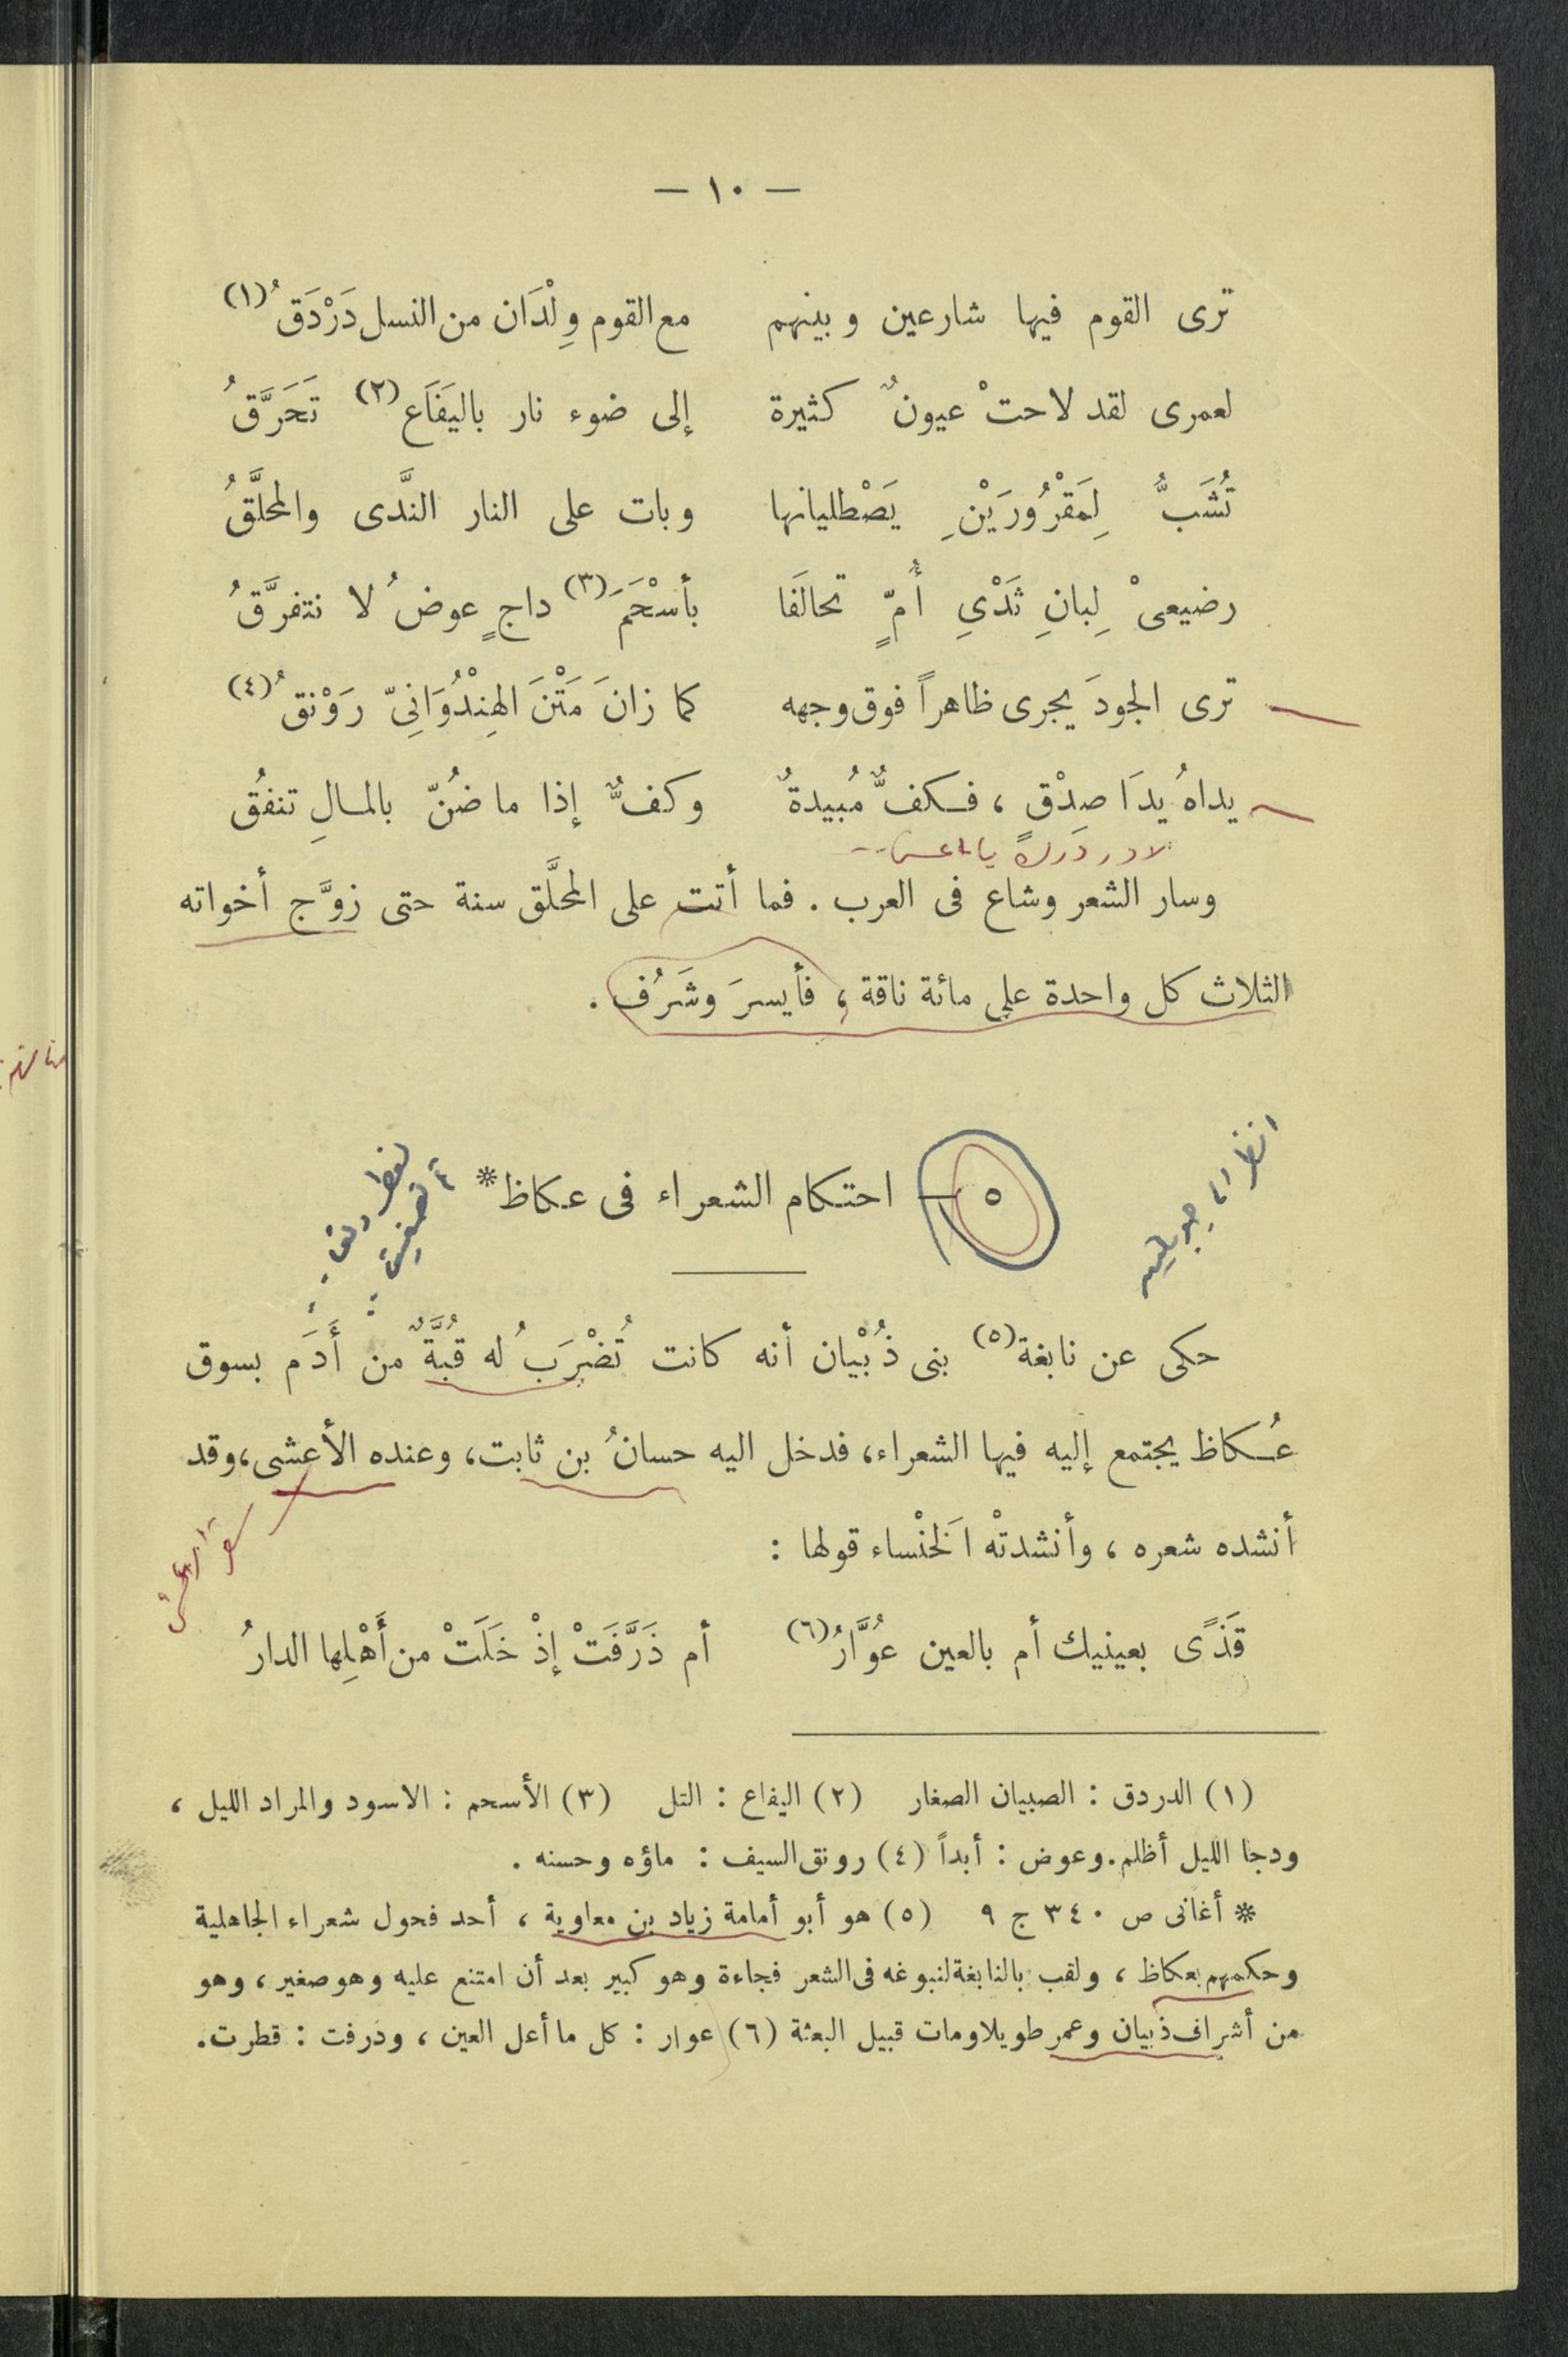 — ١٠ —
ترى القوم فيها شارعين وبينهم مع القوم وِلْدَان من النسل دَرْدَقُ (١)
لعمرى لقد لاحتْ عيونٌ كثيرة إلى ضوء نار باليَفَاع (٢) تَحَرَّقُ
تُشَبُّ لِمَقْرُورَيْنِ يَصْطليانها وبات على النار النَّدى والمحلَّقُ
رضيعىْ لِبانِ ثَدْىِ أُمٍّ تحالَفَا بأسْحَمَ (٣) داجٍ عوضُ لا نتفرَّقُ
ترى الجودَ يجرى ظاهراً فوق وجهه كما زانَ مَتْنَ الهِنْدُوَانِىّ رَوْنقُ (٤)
يداهُ يدَا صِدْق ، فكفٌّ مُبيدةٌ وكفٌّ إذا ما ضُنّ بالمالِ تنفقُ
وسار الشعر وشاع فى العرب . فما أتت على المحلَّق سنة حتى زوَّج أخواته
الثلاث كل واحدة على مائة ناقة ، فأيسرَ وشَرُف .
انظر
٥ — احتكام الشعراء فى عكاظ *
حكى عن نابغة (٥) بنى ذُبْيان أنه كانت تُضْرَبُ له قُبَّةٌ من أَدَم بسوق
عُكاظ يجتمع إليه فيها الشعراء، فدخل اليه حسانُ بن ثابت، وعنده الأعشى، وقد
أنشده شعره ، وأنشدتْه اَلخنْساء قولها :
قَذًى بعينيك أم بالعين عُوَّارُ (٦) أم ذَرَّفَتْ إذْ خَلَتْ من أَهْلِها الدارُ
(١) الدردق : الصبيان الصغار (٢) اليفاع : التل (٣) الأسحم : الاسود والمراد الليل ،
ودجا الليل أظلم. وعوض : أبداً (٤) رونق السيف : ماؤه وحسنه .
* أغانى ص ٣٤٠ ج ٩ (٥) هو أبو أمامة زياد بن معاوية ، أحد فحول شعراء الجاهلية
وحكمهم بعكاظ ، ولقب بالنابغة لنبوغه فى الشعر فجاءة وهو كبير بعد أن امتنع عليه وهو صغير ، وهو
من أشراف ذبيان وعمر طويلا ومات قبيل البعثة (٦) عوار : كل ما أعل العين ، وذرفت : قطرت.